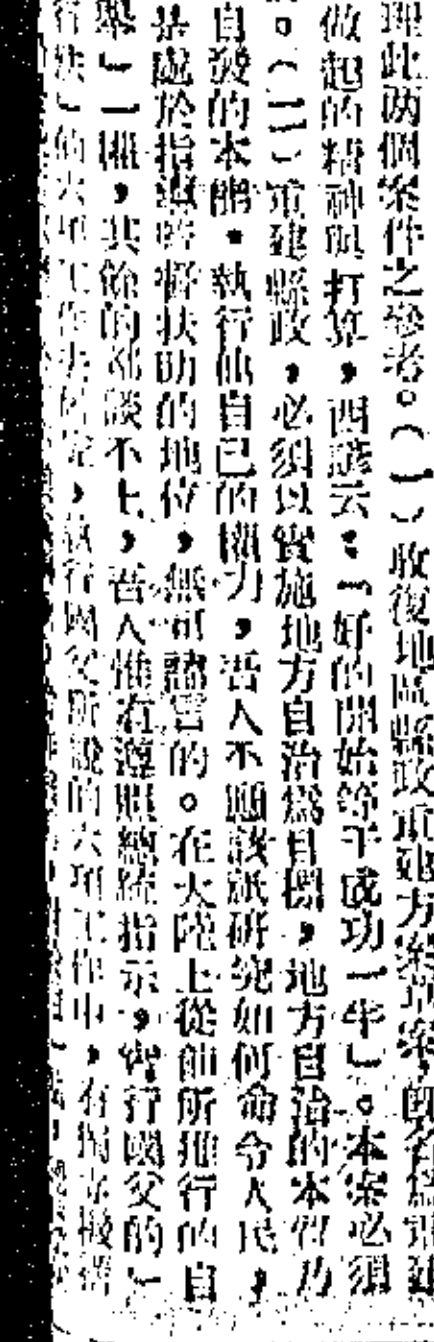 理此两個案件之參考。(一)收復地區縣政重建方案草案,既名爲重建
做起的精神與打算,西諺云:「好的開始等于成功一半」。本案必須
。(二)重建縣政,必須以實施地方自治爲目標,地方自治的本質乃
自發的本能,執行他自己的權力,吾人不應該祇研究如何命令人民,
是處於指導時擬扶助的地位,無可諱言的。在大陸上從前所推行的自
舉」一權,其餘的都談不上,吾人惟有遵照總統指示,實行國父的「
行法」的六項工作去,執行國父所說的六項工作中,有